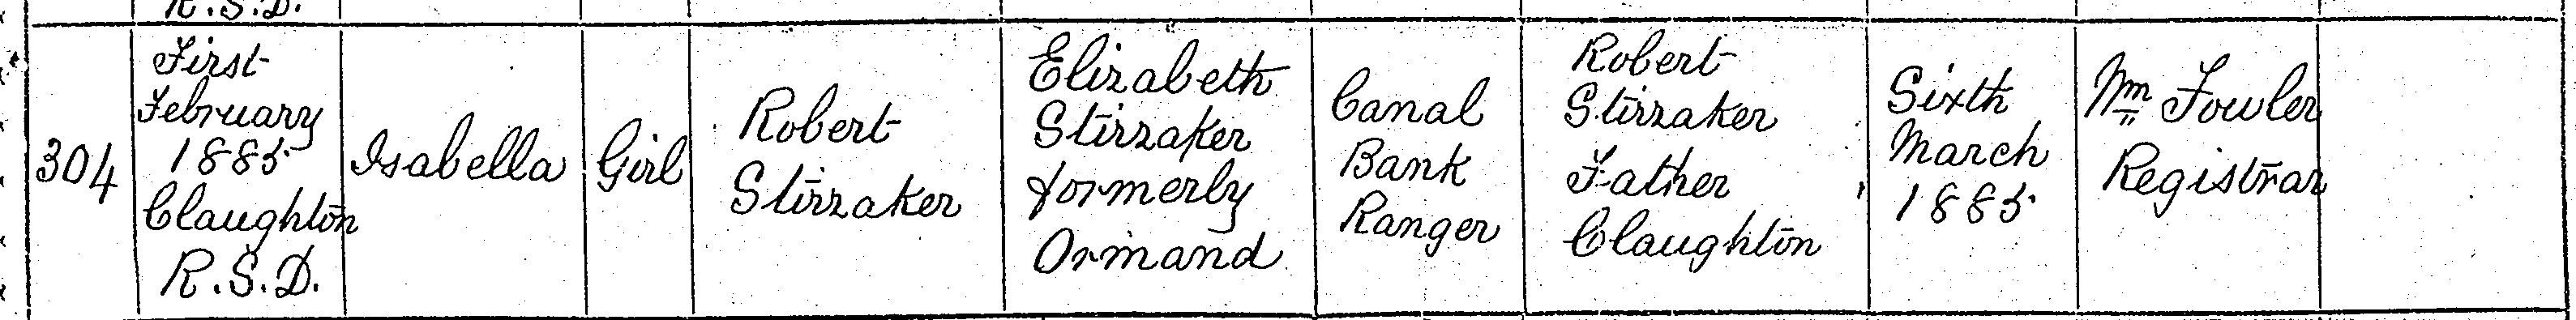 R.S.D.
304
First
February
1885
Claughton
R.S.D.
Isabella
Girl
Robert
Stirzaker
Elizabeth
Stirzaker
formerly
Ormand
Canal
Bank
Ranger
Robert
Stirzaker
Father
Claughton
Sixth
March
1885
Wm Fowler
Registrar